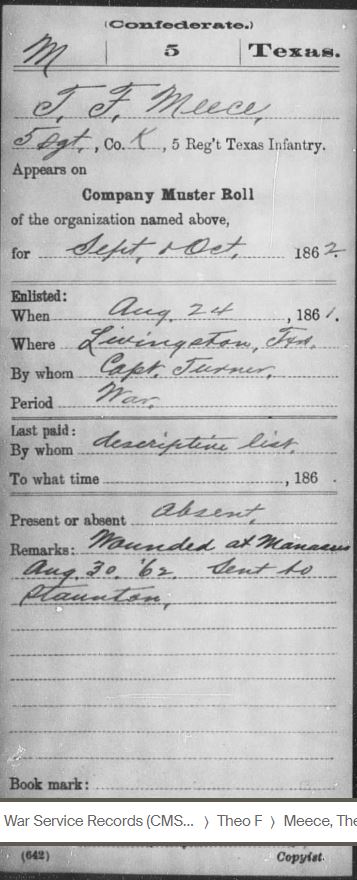 (Confederate.)
M 5 Texas.
T. F. Meece,
5 Sgt., Co. K, 5 Reg't Texas Infantry.
Appears on
Company Muster Roll
of the organization named above,
for Sept. & Oct. 1862.
Enlisted:
When Aug. 24, 1861.
Where Livingston, Tex.
By whom Capt. Turner.
Period War.
Last paid:
By whom descriptive list.
To what time , 186 .
Present or absent Absent.
Remarks: Wounded at Manassas
Aug. 30, '62. Sent to
Staunton,
Book mark:
War Service Records (CMS... 〉 Theo F 〉 Meece, The
(642) Copyist.